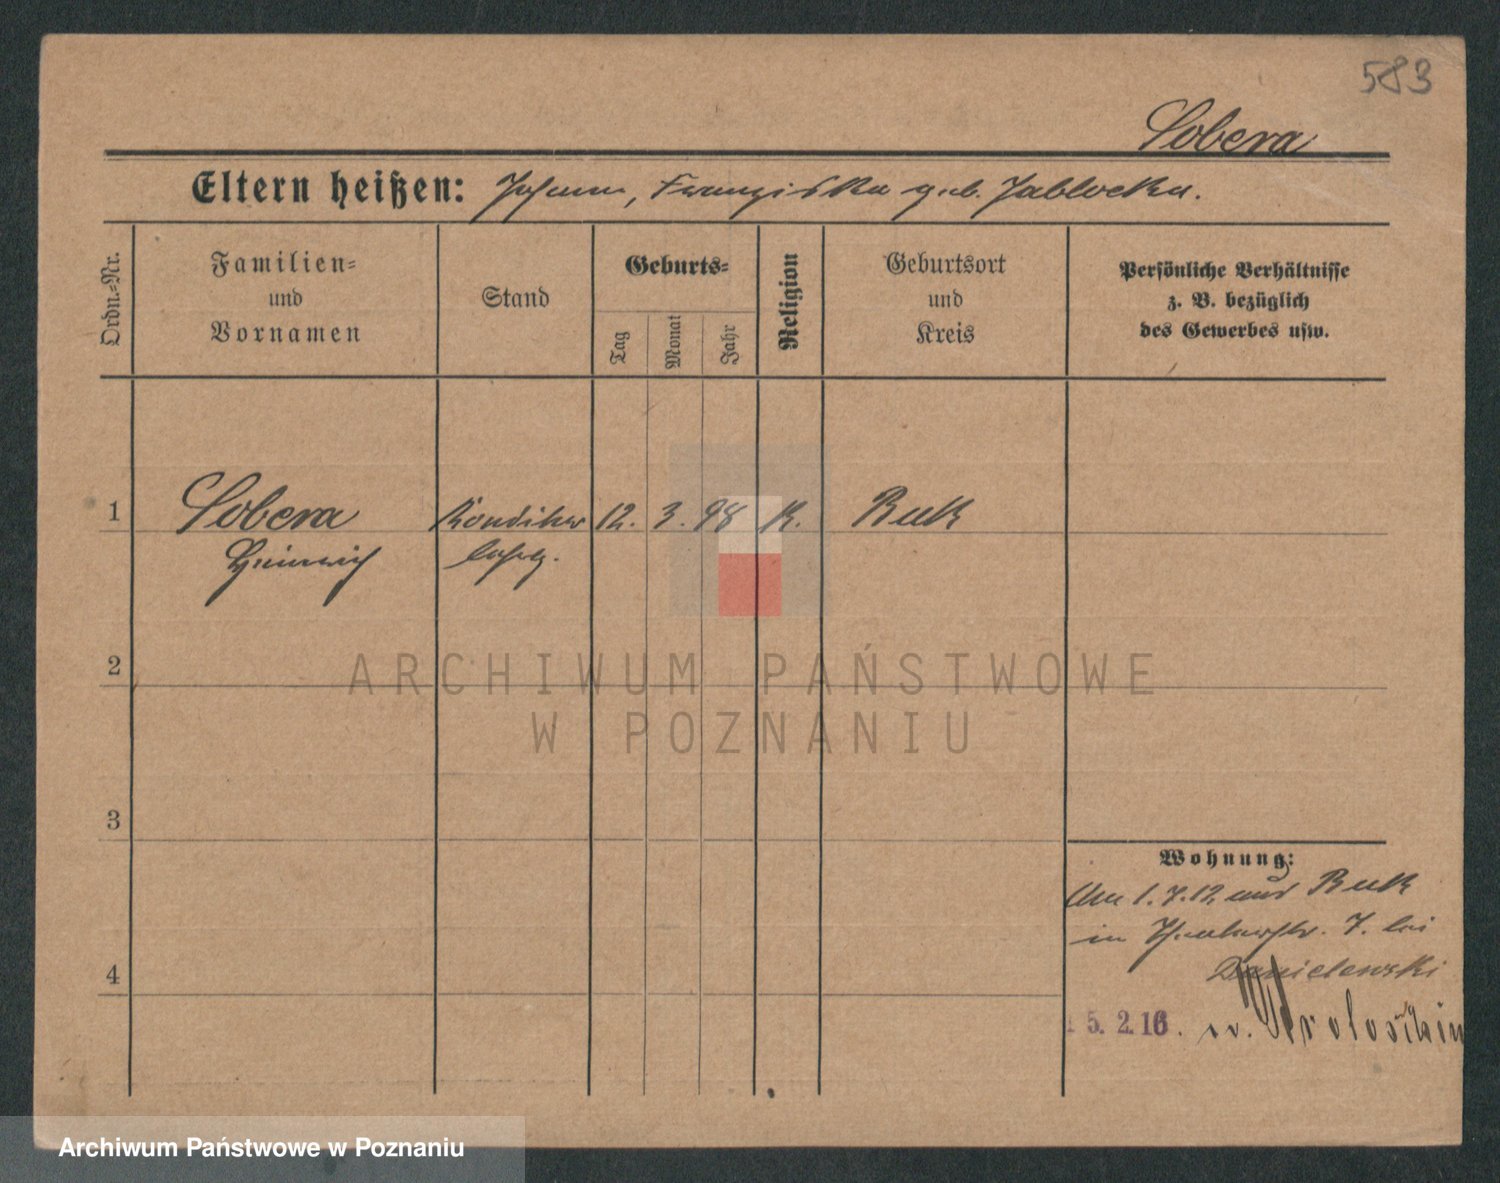 583
Sobera
Eltern heißen: Johann, Franziska geb. Jablocka.
Ordn.-Nr.
Familien-
und
Vornamen
Stand
Geburts-
Tag
Monat
Jahr
Religion
Geburtsort
und
Kreis
Persönliche Verhältnisse
z. B. bezüglich
des Gewerbes usw.
1
Sobera
Heinrich
Konditor
lehrlg.
12. 3. 98
K.
Buk
2
3
4
Wohnung:
Am 1.7.12 aus Buk
in 7. bei
Danielewski
5. 2. 16. n.
ARCHIWUM PAŃSTWOWE
W POZNANIU
Archiwum Państwowe w Poznaniu